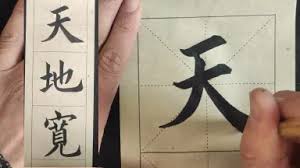 天地寬
天